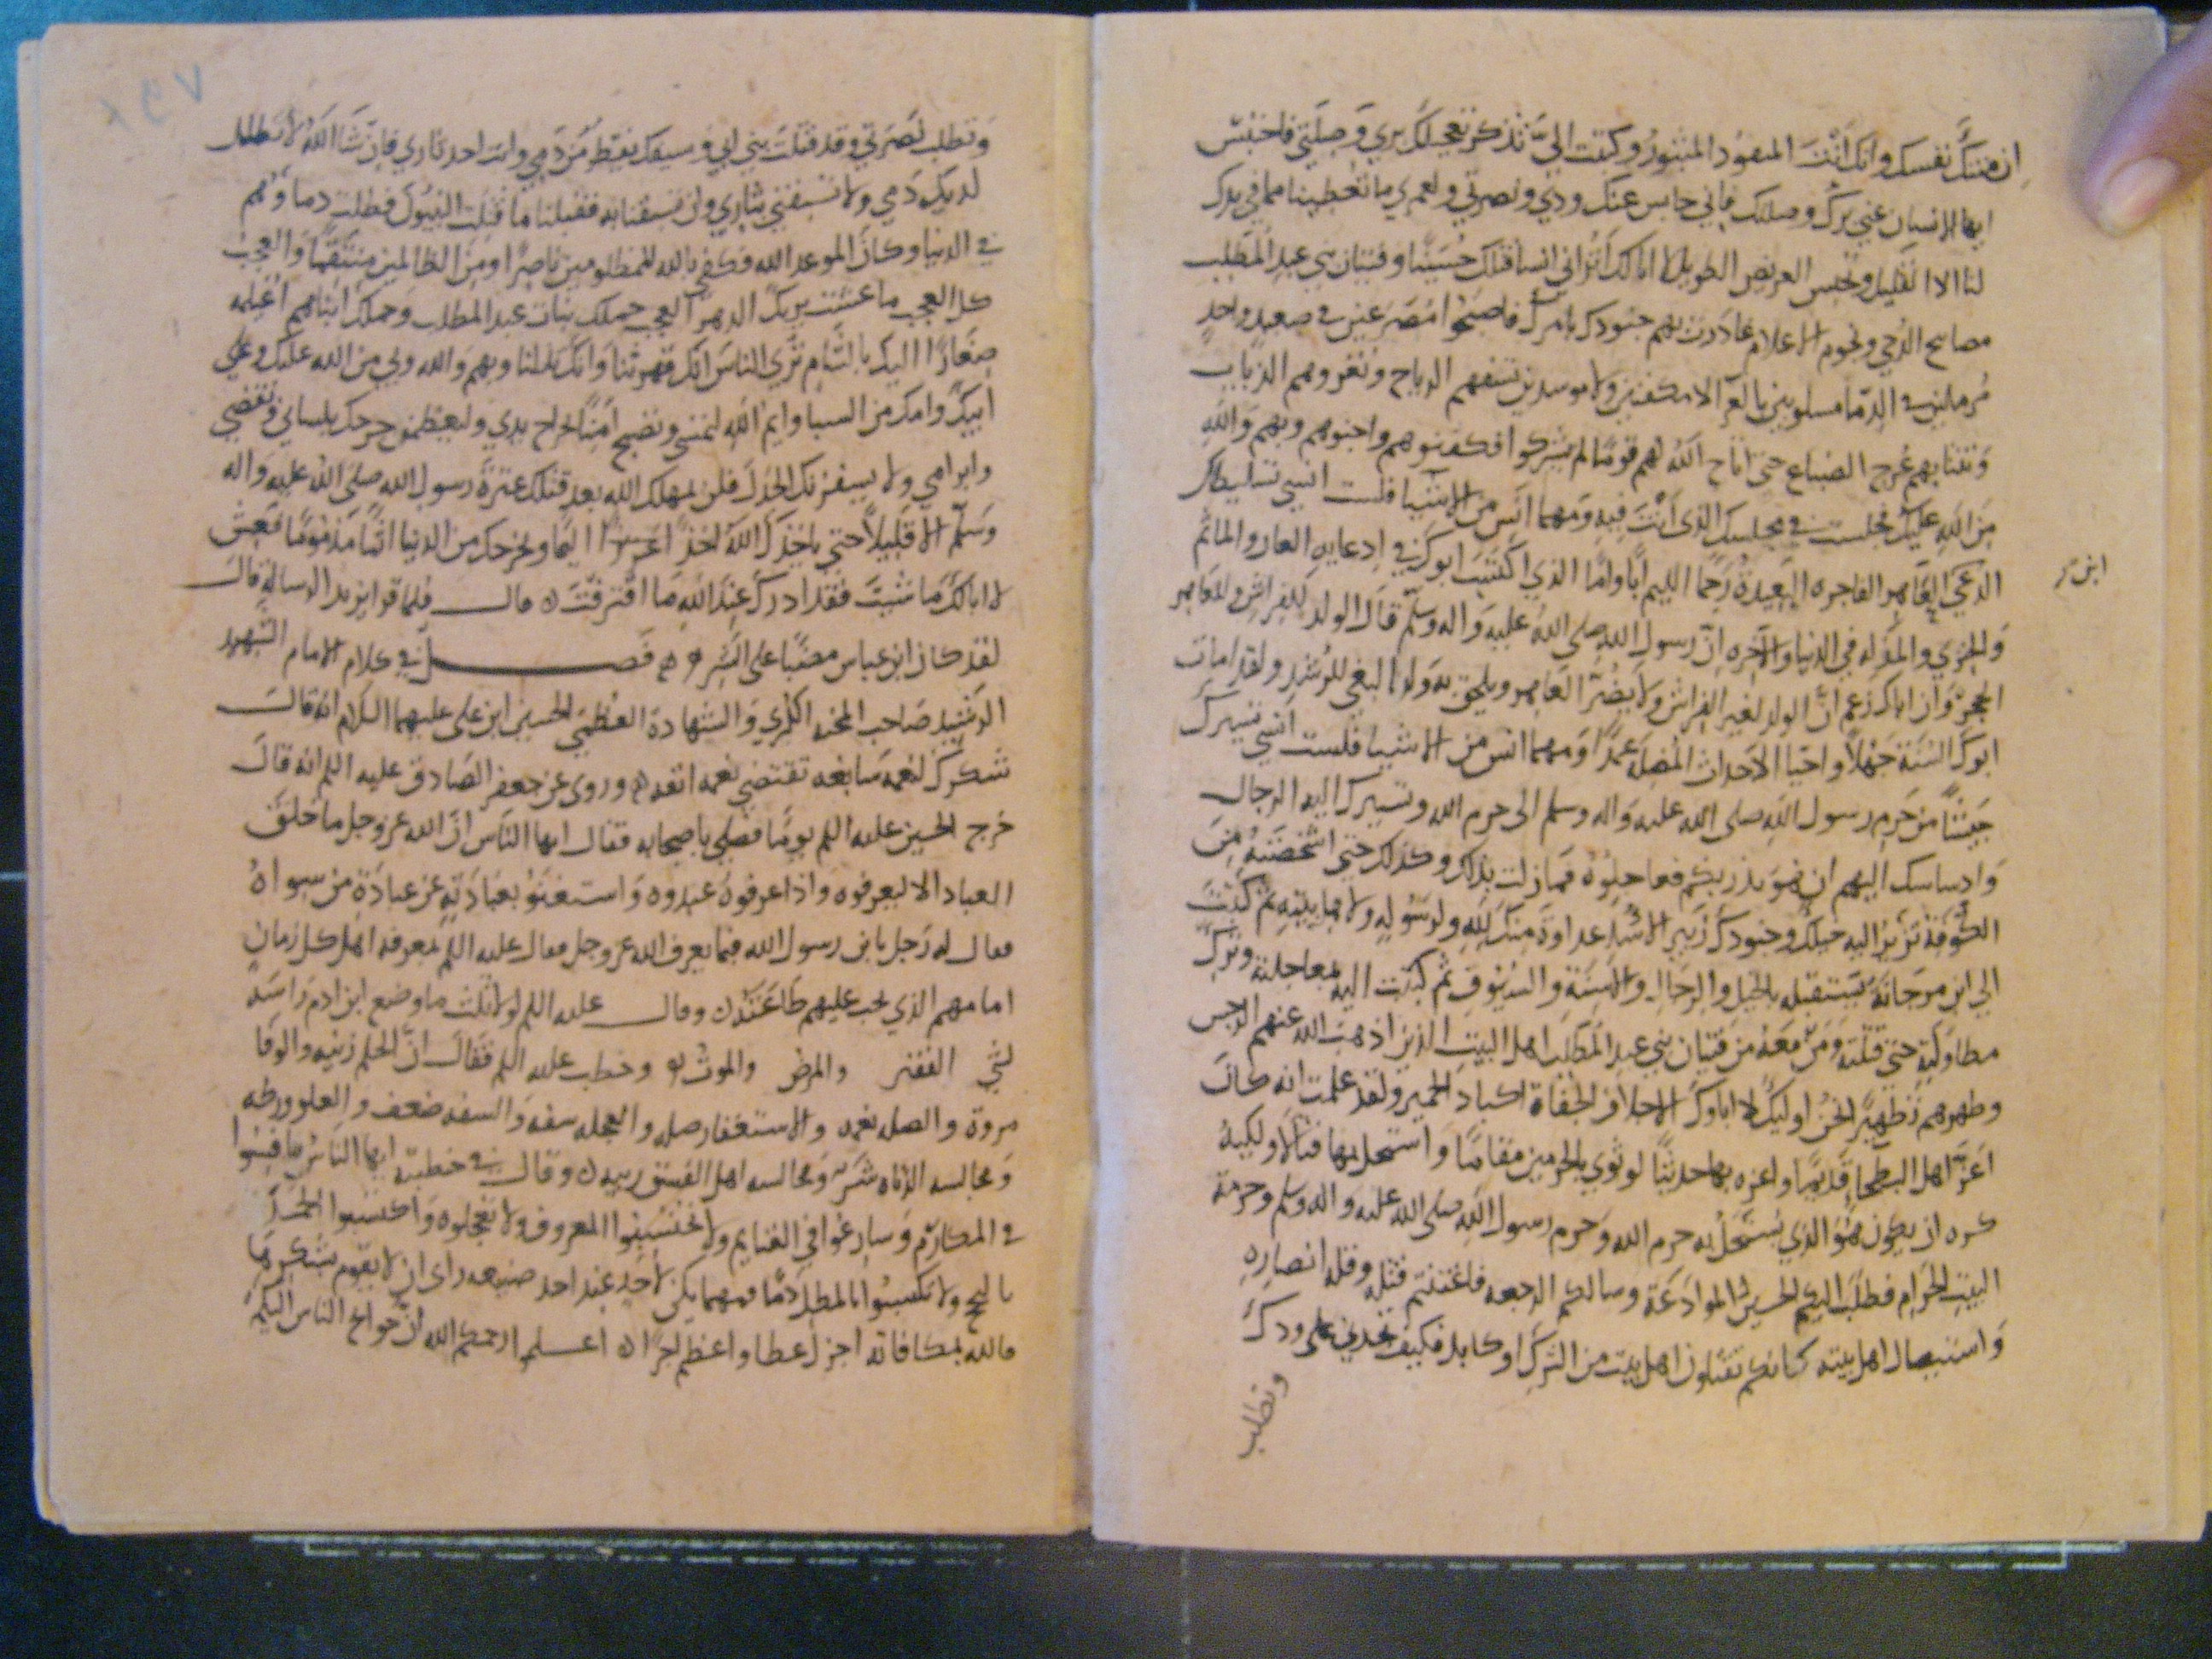 ان منتك نفسك وانك انت المفود المثبور وكتبت الي تذكر تعجيلك بري وصلتي فاحبس
ايها الانسان عني برك وصلتك فاني حابس عنك ودي ونصرتي ولعمري ما تعطينا مما في يدك
لنا الا القليل وتحبس العريض الطويل لا ابا لك اتراني انسا قتلك حسينا وفتيان بني عبد المطلب
مصابيح الدجي ونجوم الاعلام غادرت بهم جنودك بامرك فاصبحوا مصرعين في صعيد واحد
مرملين في الدما مسلوبين بالعرا لا مكفنين ولا موسدين تسفيهم الرياح وتعروهم الذياب
وتنتابهم عرج الضباع حتي اتاح الله لهم قوما لم يشركوا فكفنوهم واجنوهم وبهم والله
من الله عليك فجلست في مجلسك الذي انت فيه ومهما انس من الاشيا فلست انسي تسليطك
الدعي العاهر الفاجره البعيدة رحما الليم ابا واما الذي اكتسب ابوك في ادعايه العار والماثم
ابن
والخزي والمذله في الدنيا والاخره ان رسول الله صلى الله عليه واله وسلم قال الولد للفراش وللعاهر
الحجر وان اباك زعم ان الولد لغير الفراش ولا يضر العاهر ويلحق به ولد البغي المرشد ولقد امات
ابوك السنة جهلا واحيا الاحداث المضلة عمدا ومهما انس من الاشيا فلست انسي تسيرك
حسينا من حرم رسول الله صلى الله عليه واله وسلم الى حرم الله وتسيرك اليه الرجال
وادساسك اليهم ان هو نذر بكم فعاجلوه فما زلت بذلك وكذلك حتى اشخصته من
الكوفة تزير اليه خيلك وجنودك زيير الاسد عداوة منك لله ولرسوله ولاهل بيته ثم كتبت
الي ابن مرجانة يستقبله بالخيل والرجال والاسنة والسيوف ثم كتبت اليه بمعاجلته وترك
مطاولته حتى قتلته ومن معه من فتيان بني عبد المطلب اهل البيت الذين اذهب الله عنهم الرجس
وطهرهم تطهيرا نحن اوليك لا اباوك الاجلاف الجفاة اكباد الحمير ولقد علمت انه كان
اعز اهل البطحا قديما واعزه بها حديثا لو ثوي بالحرمين مقاما واستحل بها قتالا ولكنه
كره ان يكون هو الذي يستحل به حرم الله وحرم رسول الله صلى الله عليه واله وسلم وحرمة
البيت الحرام فطلب اليكم الحسين الموادعة وسالكم الرجعه فاغتنمتم قتله وقلة انصاره
واستيصال اهل بيته كانكم تقتلون اهل بيت من الترك او كابل فكيف تحدني على ودك
وتطلب
وتطلب نصرتي وقد قتلت بني ابي وسيفك يقطر من دمي وانت احد ثاري فان شا الله لا يطل
لديك دمي ولا تسبقني بثاري وان تسبقنا به فقبلنا ما قتلت النبيون فطلت دماوهم
في الدنيا وكان الموعد الله فكفى بالله للمظلومين ناصرا ومن الظالمين منتقما والعجب
كل العجب ما عشت يريك الدهر العجب حملك بنات عبد المطلب وحملك ابناهم اغيلمه
صغارا اليك بالشام تري الناس انك قهرتنا وانك تذلنا وبهم والله ولي من الله عليك وعلي
ابيك وامك من السبا وايم الله لتمسي وتصبح امنا لجراح يدي وليعظمن جرحك بلساني ونقضي
وابرامي ولا يستفزنك الجذل فلن يمهلك الله بعد قتلك عترة رسول الله صلى الله عليه واله
وسلم الا قليلا حتي ياخذك الله اخذا عزيزا اليما ويخرجك من الدنيا اثما مذموما فعش
لا ابا لك ما شيت فقد ادرك عند الله ما اقترفت قال فلما قرا يزيد الرسالة قال
لقد كان ابن عباس مضبا على الشر فصل في كلام الامام الشهيد
الرشيد صاحب المحنه الكبري والشهادة العظمي الحسين ابن علي عليهما السلام انه قال
شكرك لنعمه سابغه تقتضي نعمه انفه وروي عن جعفر الصادق عليه السلم انه قال
خرج الحسين عليه السلم يوما فصلى باصحابه فقال ايها الناس ان الله عز وجل ما خلق
العباد الا ليعرفوه واذا عرفوه عبدوه واستغنو بعبادته عن عبادة من سواه
فقال له رجل يا بن رسول الله فبما يعرف الله عز وجل فقال عليه السلم بمعرفة اهل كل زمان
امامهم الذي تجب عليهم طاعته وقال عليه السلم لولا ثلث ما وضع ابن ادم راسه
لشي الفقر والمرض والموت وخطب عليه السلم فقال ان الحلم زينه والوفا
مروة والصله نعمه والاستغفار صله والعجله سفه والسفه ضعف والعلو ورطه
ومجالسه الدناه شر ومجالسه اهل الفسق ريبه وقال في خطبته ايها الناس نافسوا
في المكارم وسارعوا في الغنايم ولا تحتسبوا المعروف ولا تعجلوه واكتسبوا الحمد
بالنجح ولا تكتسبوا بالمطل ذما فمهما يكن لاحد عند احد صنيعه راى ان لا يقوم بشكرها
فالله بمكافاته اجزل عطا واعظم اجرا اعلموا رحمكم الله ان حوايج الناس اليكم